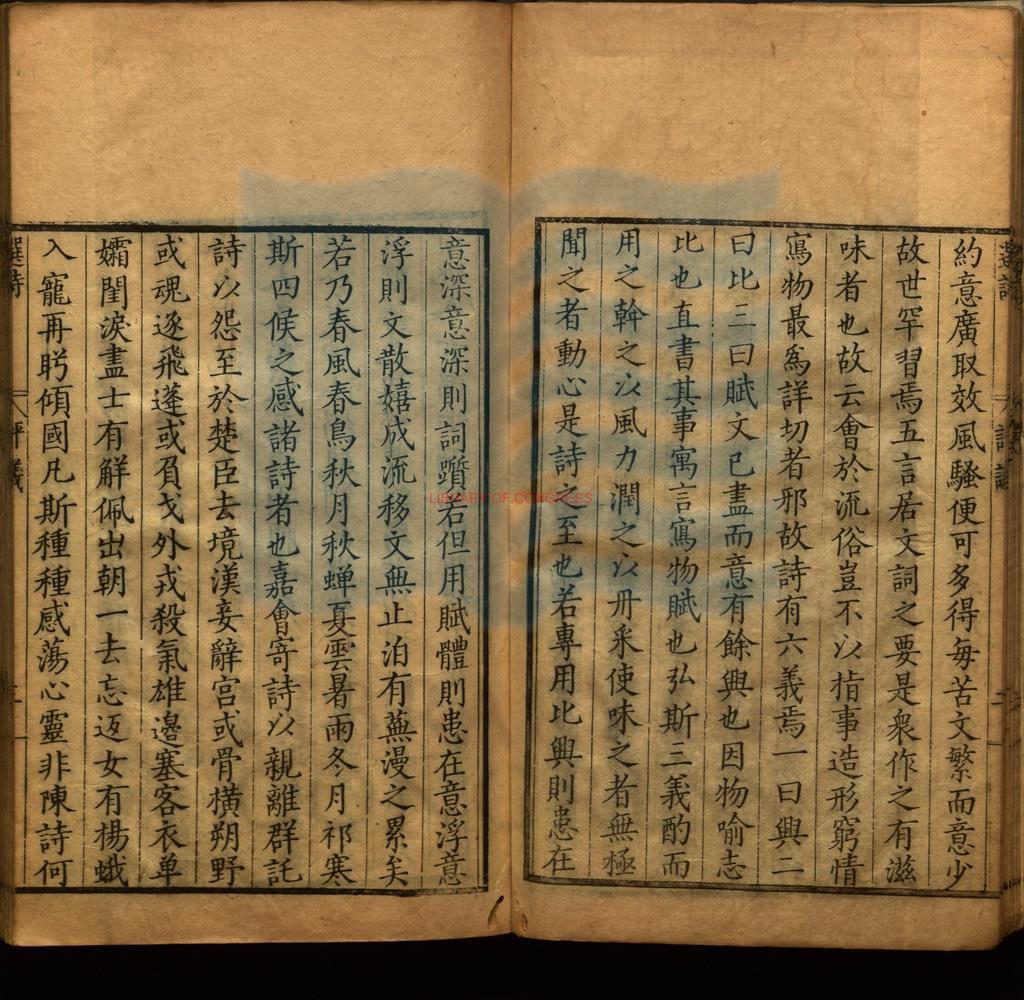 約意廣取效風騷便可多得每苦文繁而意少
故世罕習焉五言居文詞之要是衆作之有滋
味者也故云會於流俗豈不以指事造形窮情
寫物最爲詳切者邪故詩有六義焉一曰興二
曰比三曰賦文已盡而意有餘興也因物喻志
比也直書其事寓言寫物賦也弘斯三義酌而
用之幹之以風力潤之以丹采使味之者無極
聞之者動心是詩之至也若專用比興則患在
意深意深則詞躓若但用賦體則患在意浮意
浮則文散嬉成流移文無止泊有蕪漫之累矣
若乃春風春鳥秋月秋蟬夏雲暑雨冬月祁寒
斯四候之感諸詩者也嘉會寄詩以親離群託
詩以怨至於楚臣去境漢妾辭宮或骨橫朔野
或魂逐飛蓬或負戈外戎殺氣雄邊塞客衣单
孀閨淚盡士有解佩出朝一去忘返女有楊蛾
入寵再盻傾國凡斯種種感蕩心靈非陳詩何
選詩
評議
三
LIBRARY OF CONGRESS